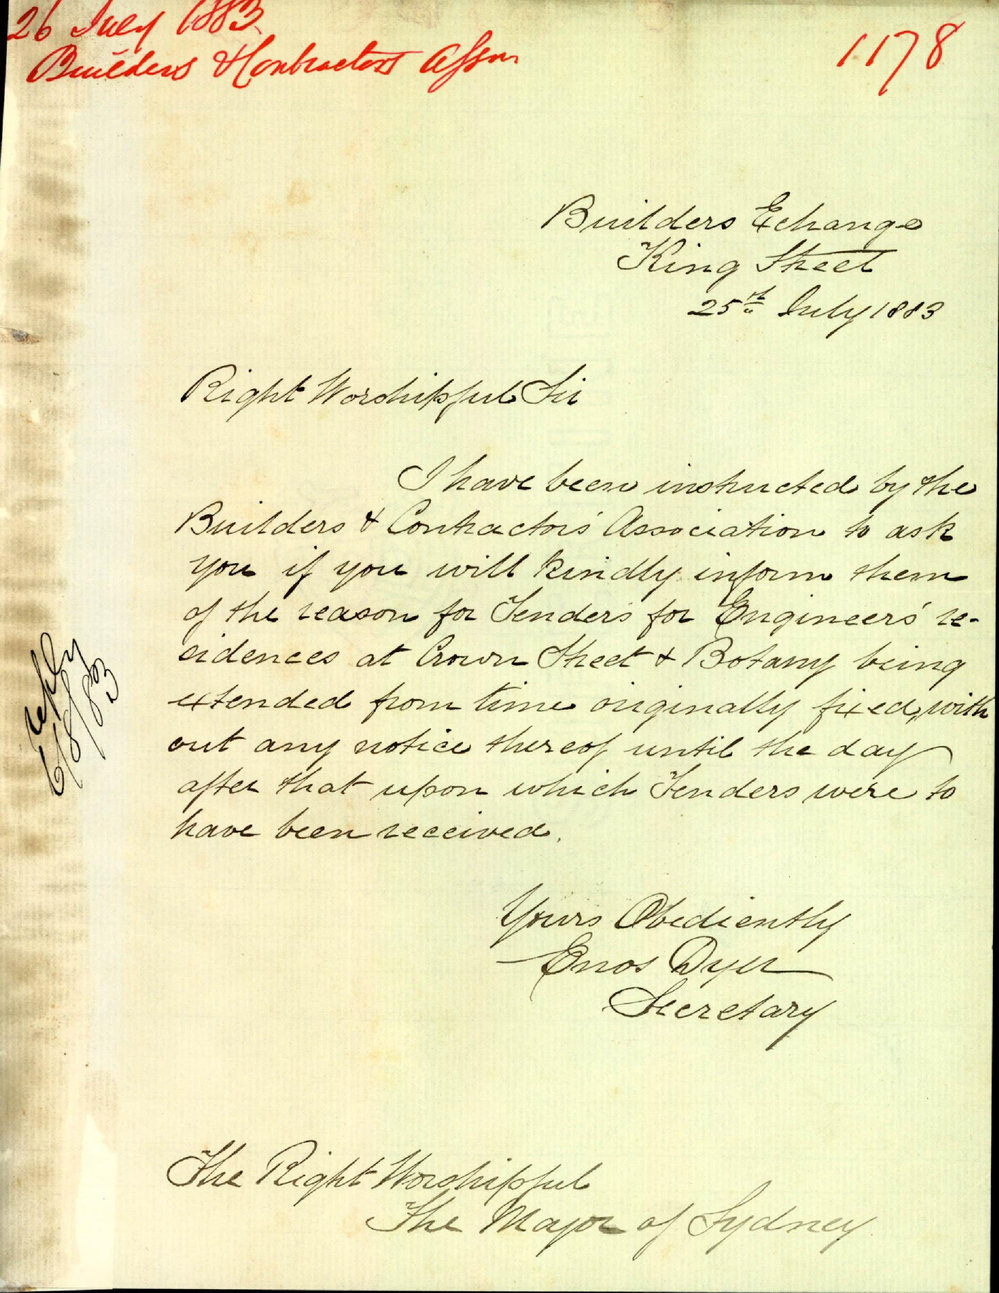 26 July 1883
Builders & Contractors Assn
1178
Builders Echange
King Street
25th July 1883
Right Worshipful Sir
I have been instructed by the
Builders & Contractors' Association to ask
you if you will kindly inform them
of the reason for Tenders for Engineers' re-
sidences at Crown Street & Botany being
extended from time originally fixed, with
out any notice thereof until the day
after that upon which Tenders were to
have been received.
reply
6/8/83
Yours Obediently
Enos Dyer
Secretary
The Right Worshipful
The Mayor of Sydney